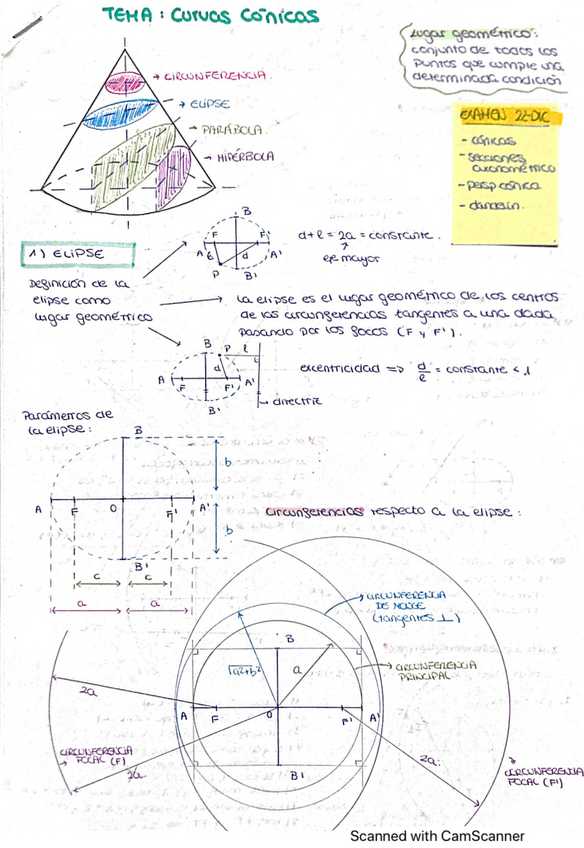 TEMA: CURVAS CÓNICAS
Lugar geométrico:
conjunto de todos los
puntos que cumple una
determinada condición
→ CIRCUNFERENCIA
→ ELIPSE
→ PARÁBOLA
→ HIPÉRBOLA
EXAMEN 22-DIC
- cónicas
- secciones
axonométrico
- persp cónica
- dandelin
1) ELIPSE
Definición de la
elipse como
lugar geométrico
B
F
F'
A
l
d
A'
P
B'
d+l = 2a = constante.
eje mayor
La elipse es el lugar geométrico de los centros
de las circunferencias tangentes a una dada
pasando por los focos (F y F').
B
P
l
d
A
F
F'
A'
B'
→ directriz
excentricidad => d/l = constante < 1
Parámetros de
la elipse:
B
b
A
F
O
F'
A'
b
B'
c
c
a
a
Circunferencias respecto a la elipse:
CIRCUNFERENCIA
DE MONGE
(tangentes ⊥)
B
√a²+b²
a
→ CIRCUNFERENCIA
PRINCIPAL
2a
A
F
O
F'
A'
2a
CIRCUNFERENCIA
FOCAL (F)
2a
B'
CIRCUNFERENCIA
FOCAL (F')
Scanned with CamScanner